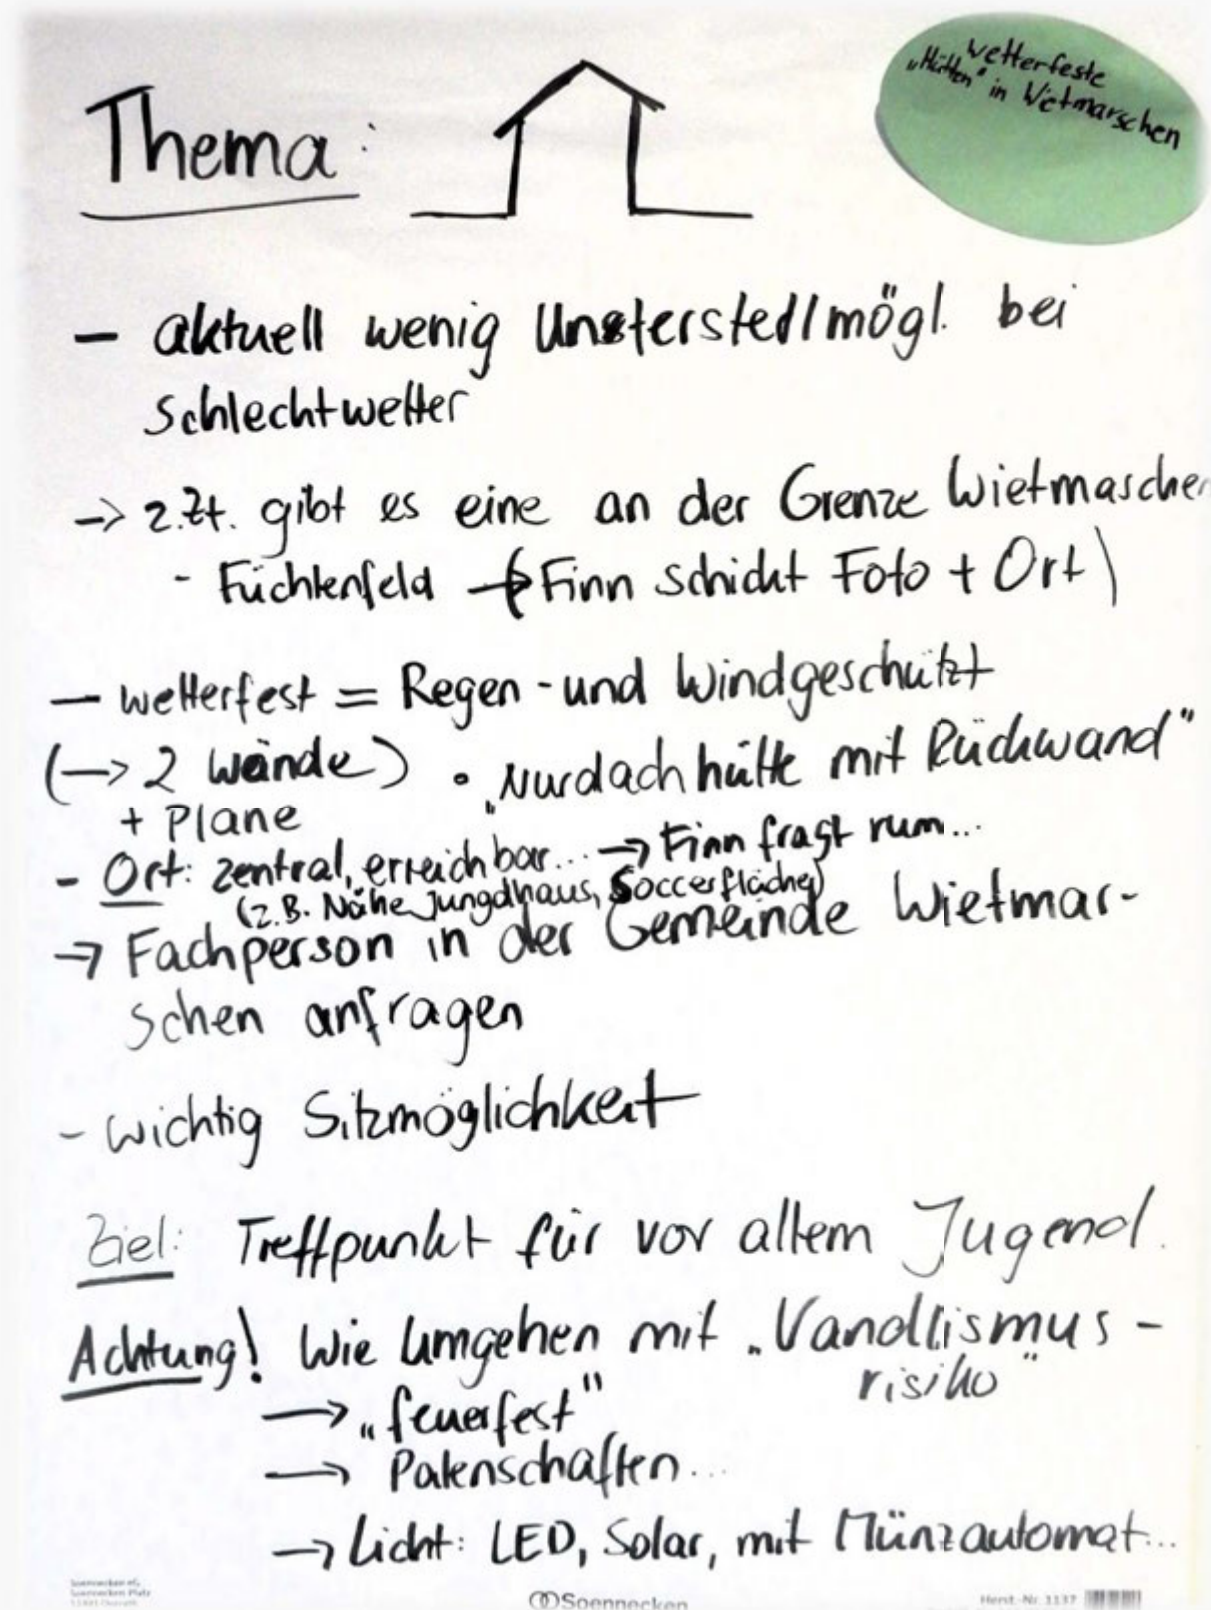 wetterfeste
„Hütten" in Wietmarschen
Thema:
- aktuell wenig Unsterstellmögl. bei
Schlechtwetter
-> z.Zt. gibt es eine an der Grenze Wietmaschen
- Füchtenfeld -> (Finn schickt Foto + Ort)
- wetterfest = Regen- und Windgeschützt
(-> 2 Wände) • „Nurdachhütte mit Rückwand"
+ Plane
- Ort: zentral, erreichbar... -> Finn fragt rum...
(z.B. Nähe Jungdhaus, Soccerfläche)
-> Fachperson in der Gemeinde Wietmar-
schen anfragen
- wichtig Sitzmöglichkeit
Ziel: Treffpunkt für vor allem Jugend.
Achtung! Wie umgehen mit „Vandlismus-
risiko"
-> „feuerfest"
-> Patenschaften...
-> Licht: LED, Solar, mit Münzautomat...
Soennecken eG
Soennecken Platz
Soennecken
Herst.-Nr. 1137